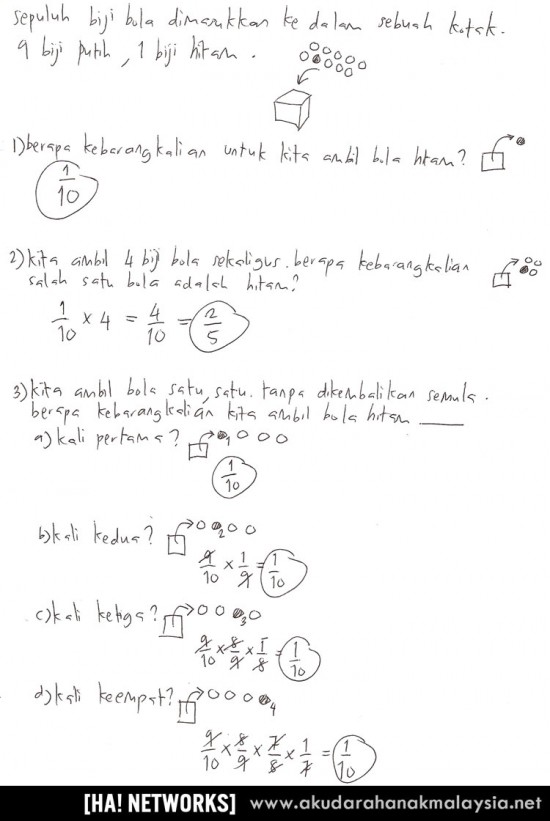 sepuluh biji bola dimasukkan ke dalam sebuah kotak.
9 biji putih, 1 biji hitam.
1) berapa kebarangkalian untuk kita ambil bola hitam?
1/10
2) kita ambil 4 biji bola sekaligus. berapa kebarangkalian
salah satu bola adalah hitam?
1/10 × 4 = 4/10 = 2/5
3) kita ambil bola satu, satu. tanpa dikembalikan semula.
berapa kebarangkalian kita ambil bola hitam ____
a) kali pertama? 1
1/10
b) kali kedua? 2
9/10 × 1/9 = 1/10
c) kali ketiga? 3
9/10 × 8/9 × 1/8 = 1/10
d) kali keempat? 4
9/10 × 8/9 × 7/8 × 1/7 = 1/10
[HA! NETWORKS] www.akudarahanakmalaysia.net